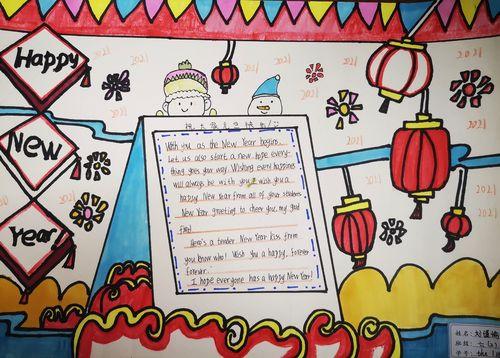 Happy
New
Year
2021
2021
2021
2021
2021
2021
2021
祝大家新年快乐!
With you as the New Year begins.
Let us also start a new hope every-
thing goes your way. Wishing every happiness
will always be with you. I wish you a
happy New Year from all of your students
New Year greeting to cheer you, my good
Here's a tender New Year kiss from
you know who! Wish you a happy, forever
forever.
I hope everyone has a happy New Year!
姓名:
班级:
学号: